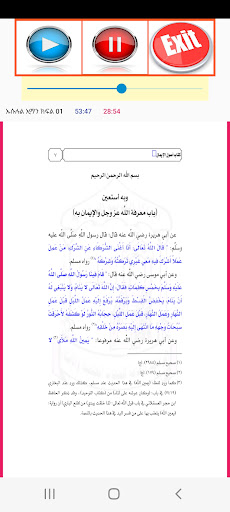 Exit
ኡሱሉል ኢማን ክፍል 01 53:47 28:54
كتاب أصول الإيمان
٧
بسم الله الرحمن الرحيم
وبه أستعين
(باب معرفة الله عز وجل والإيمان به)
عن أبي هريرة رضي الله عنه قال: قال رسول الله صلى الله عليه
وسلم: " قال الله تعالى: أنا أغنى الشركاء عن الشرك، من عمل
عملا أشرك فيه معي غيري تركته وشركه " رواه مسلم.
وعن أبي موسى رضي الله عنه قال: " قام فينا رسول الله صلى الله
عليه وسلم بخمس كلمات فقال: إن الله تعالى لا ينام، ولا ينبغي له
أن ينام، يخفض القسط ويرفعه، يرفع إليه عمل الليل قبل عمل
النهار، وعمل النهار، قبل عمل الليل، حجابه النور لو كشفه لأحرقت
سبحات وجهه ما انتهى إليه بصره من خلقه " رواه
مسلم.
وعن أبي هريرة رضي الله عنه مرفوعا: " يمين الله ملأى لا
(١) صحيح مسلم
(٢) صحيح مسلم